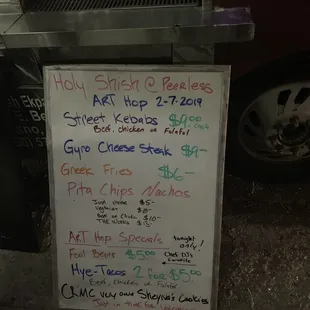 Holy Shish @ Peerless
Art Hop 2-7-2019
Street Kebabs $9.00 each
Beef, chicken or Falafal
Gyro Cheese Steak $9-
Greek Fries $6-
Pita Chips Nachos
Just cheese $5-
Vegetarian $8-
Beef or Chicken $10-
The Works $13-
Art Hop Specials tonight only!
Fool Beans $5.00 Chef DJ's favorite
Hye-Tacos 2 for $5.00
Beef, Chicken or Falafal
CRMC very own Sheyna's Cookies
Just in time for